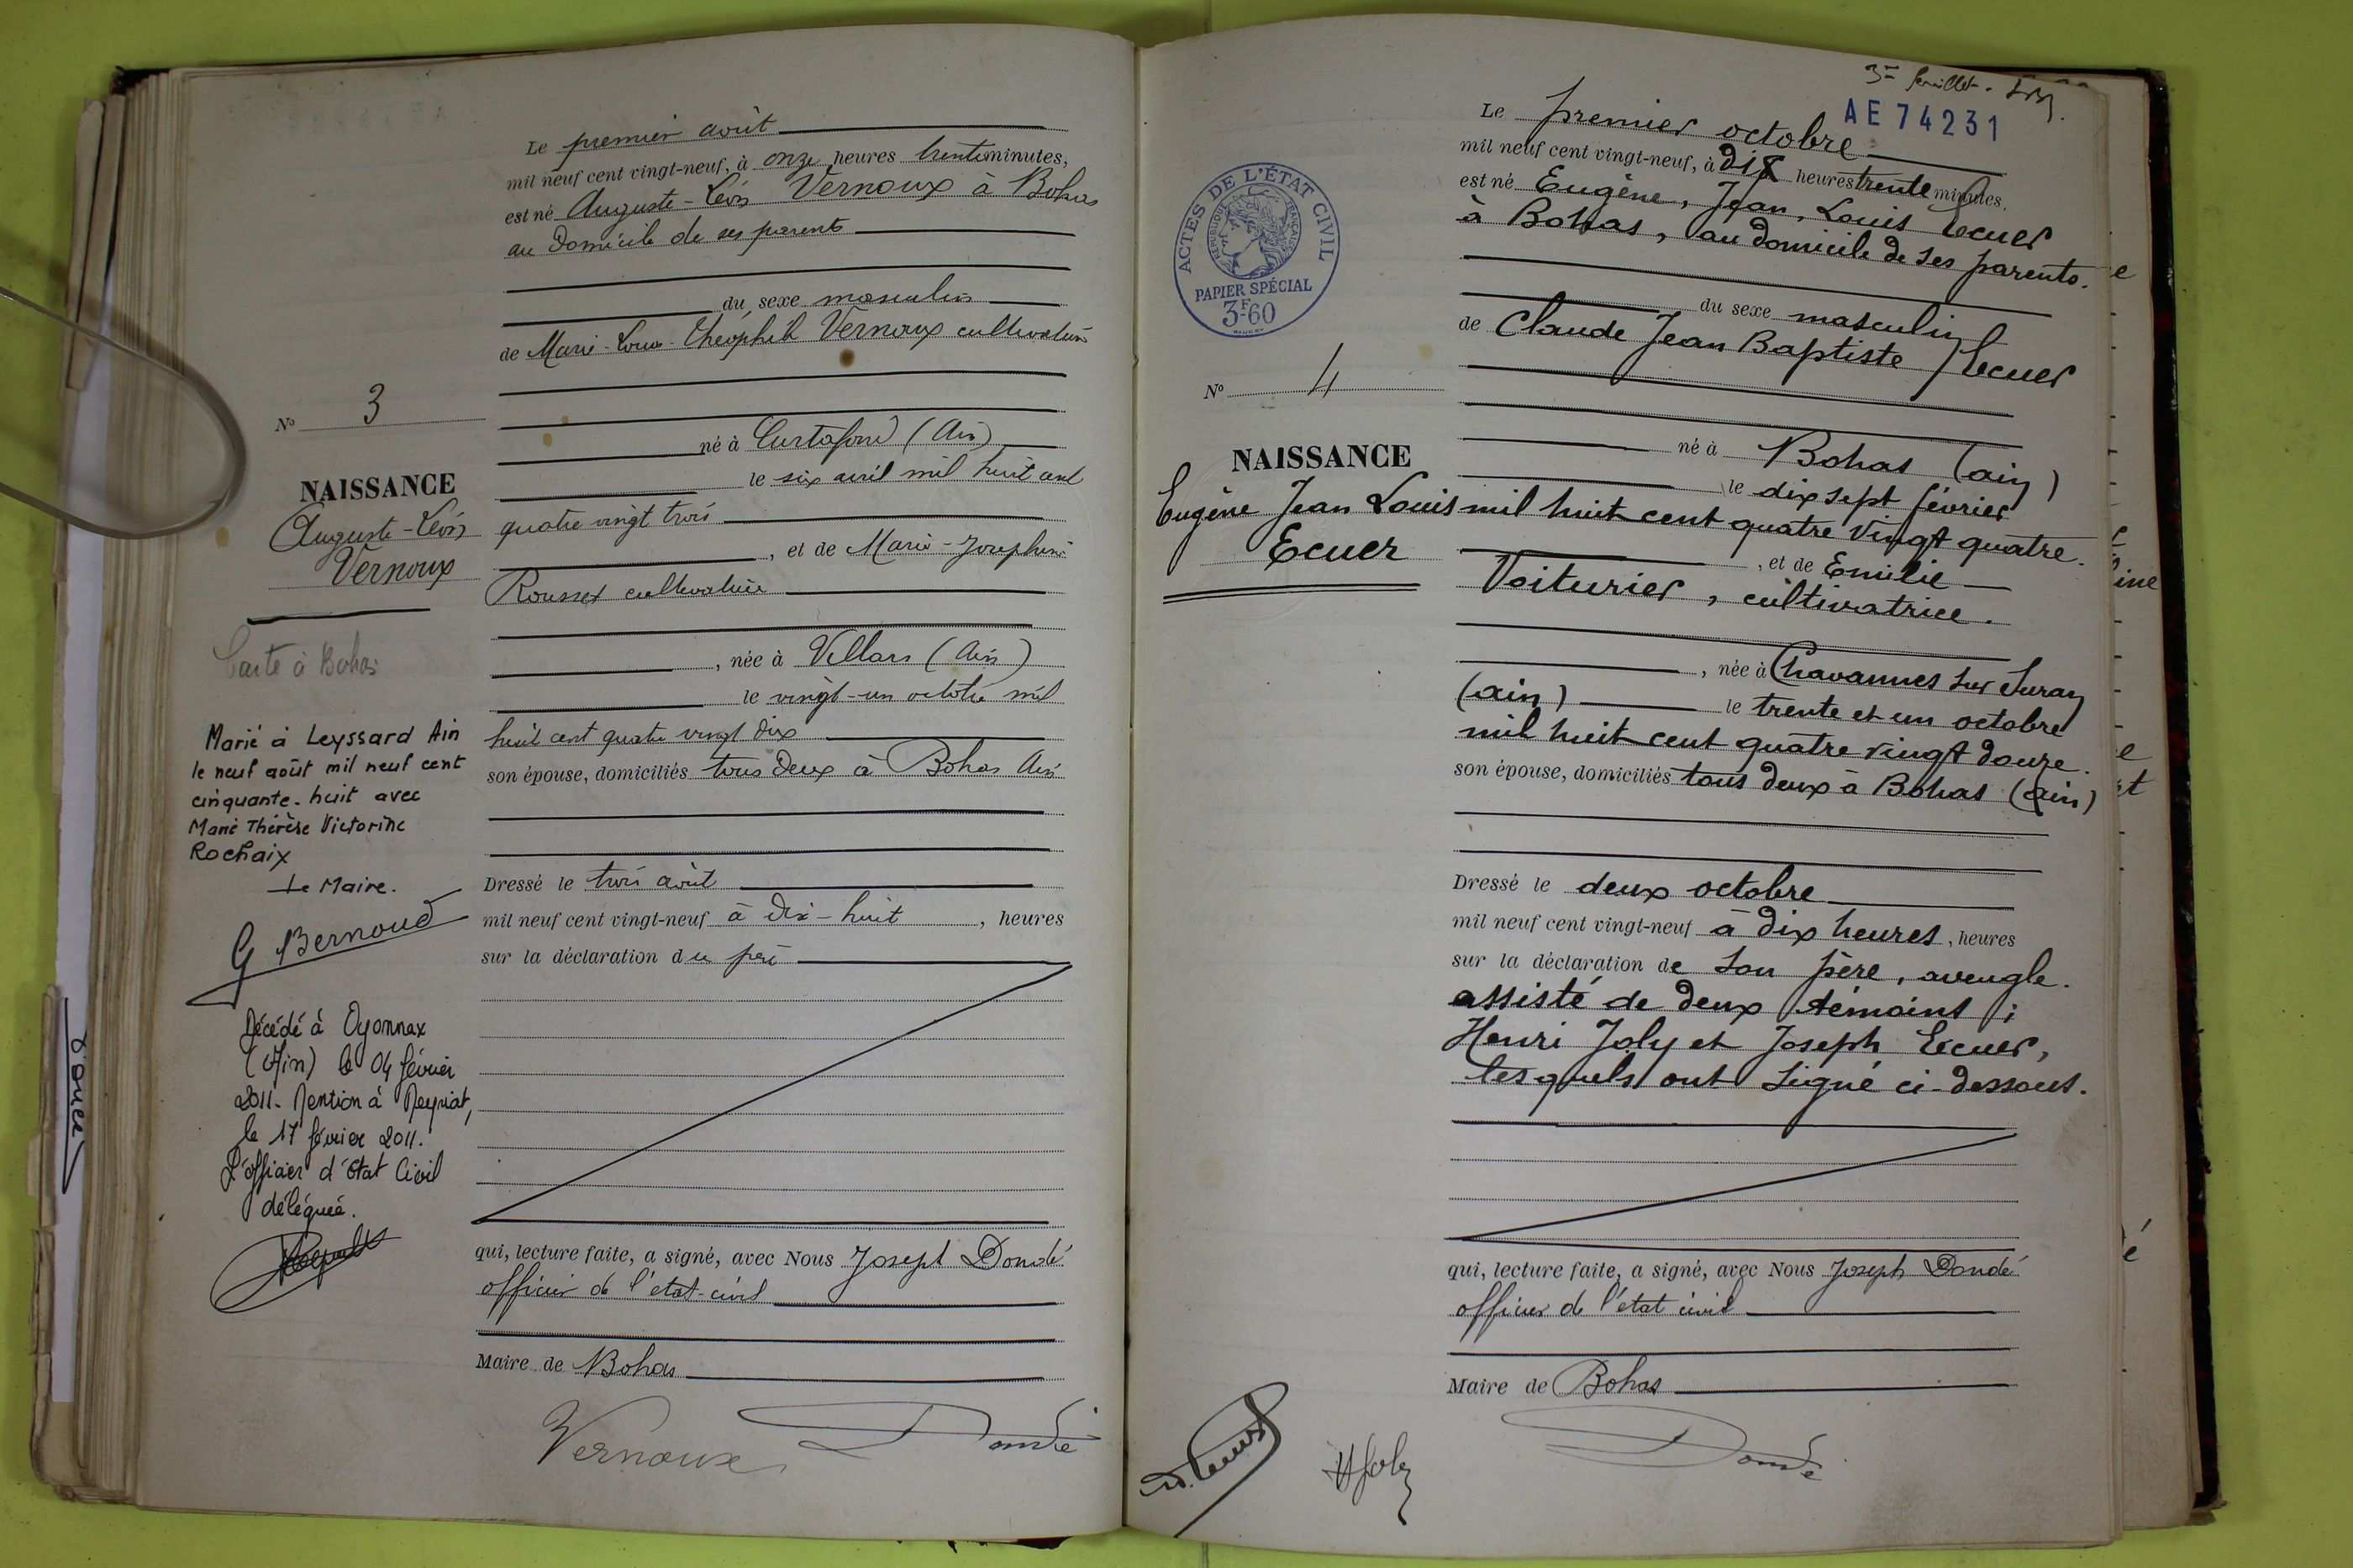 Le premier août
mil neuf cent vingt-neuf, à onze heures trente minutes,
est né Auguste-Léon Vernoux à Bohas
au domicile de ses parents
du sexe masculin
de Marie-Louis-Théophile Vernoux cultivateur
né à Curtafond (Ain)
le six avril mil huit cent
quatre vingt trois
, et de Marie-Joséphine
Rousset cultivatrice
, née à Villars (Ain)
le vingt-un octobre mil
huit cent quatre vingt dix
son épouse, domiciliés tous deux à Bohas Ain
Dressé le trois août
mil neuf cent vingt-neuf à dix-huit , heures
sur la déclaration du père
qui, lecture faite, a signé, avec Nous Joseph Dondé
officier de l'état-civil
Maire de Bohas
Vernoux Dondé
No 3
NAISSANCE
Auguste-Léon
Vernoux
Carte à Bohas
Marié à Leyssard Ain
le neuf août mil neuf cent
cinquante-huit avec
Marie Thérèse Victorine
Rochaix
Le Maire.
G Bernoud
Décédé à Oyonnax
(Ain) le 04 février
2011. Mention à Meyriat,
le 17 février 2011.
L'officier d'état Civil
délégué.
3me feuillet.
AE 74231
Le premier octobre
mil neuf cent vingt-neuf, à dix heures trente minutes,
est né Eugène, Jean, Louis Ecuer
à Bohas, au domicile de ses parents.
du sexe masculin
de Claude Jean Baptiste Ecuer
né à Bohas (ain)
le dix sept février
mil huit cent quatre vingt quatre.
, et de Emilie
Voiturier, cultivatrice.
, née à Chavannes sur Suran
(ain) le trente et un octobre
mil huit cent quatre vingt douze.
son épouse, domiciliés tous deux à Bohas (ain)
Dressé le deux octobre
mil neuf cent vingt-neuf à dix heures, heures
sur la déclaration de son père, aveugle.
assisté de deux témoins ;
Henri Joly et Joseph Ecuer,
lesquels ont signé ci-dessous.
qui, lecture faite, a signé, avec Nous Joseph Dondé
officier de l'état civil
Maire de Bohas
H Joly Dondé
ACTES DE L'ÉTAT CIVIL
RÉPUBLIQUE FRANÇAISE
PAPIER SPÉCIAL
3F60
No 4
NAISSANCE
Eugène Jean Louis
Ecuer